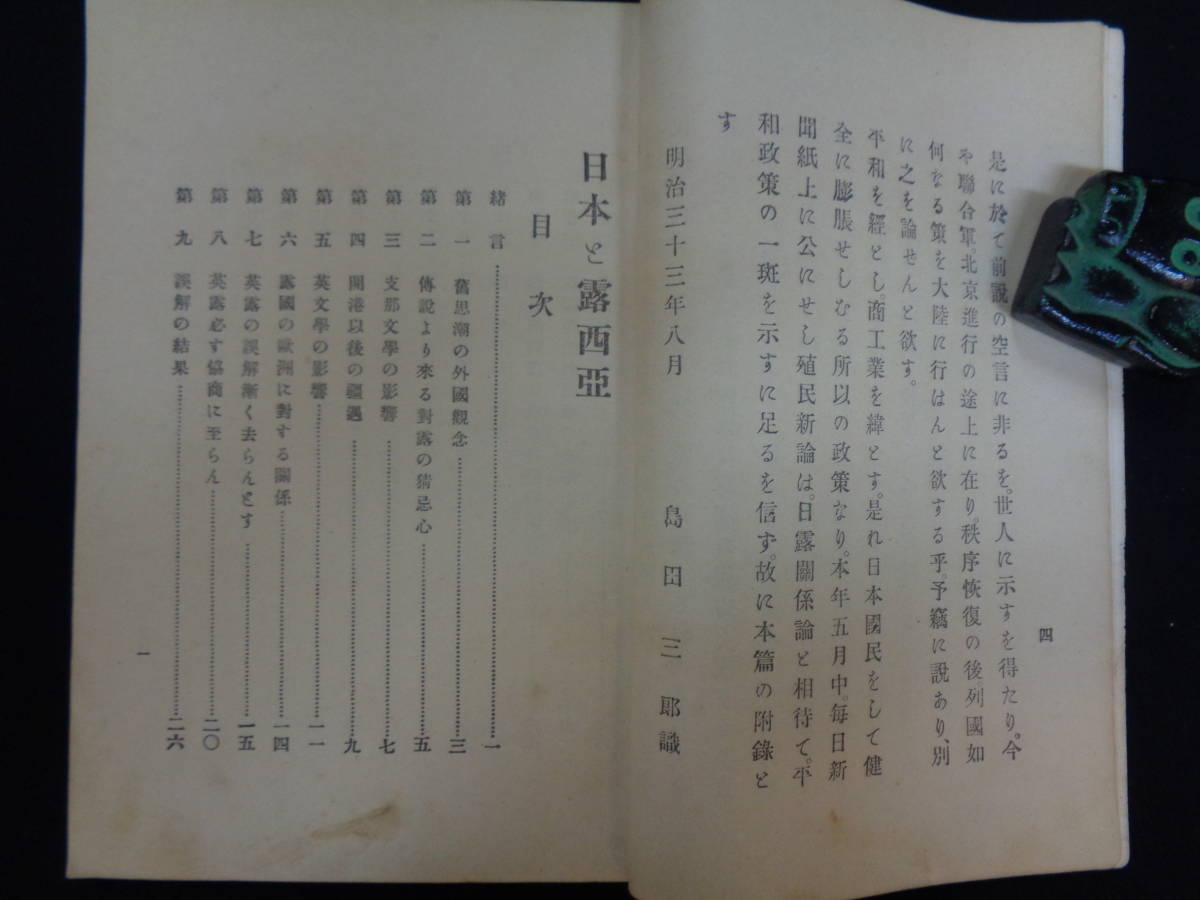 四
是に於て前説の空言に非るを。世人に示すを得たり。今
や聯合軍。北京進行の途上に在り。秩序恢復の後列國如
何なる策を大陸に行はんと欲する乎。予竊に説あり、別
に之を論せんと欲す。
平和を經とし。商工業を緯とす。是れ日本國民をして健
全に膨脹せしむる所以の政策なり。本年五月中。每日新
聞紙上に公にせし殖民新論は。日露關係論と相待て。平
和政策の一斑を示すに足るを信ず。故に本篇の附錄と
す
明治三十三年八月 島田三郎識
日本と露西亞
目次
緒言……一
第一 舊思潮の外國觀念……三
第二 傳說より來る對露の猜忌心……五
第三 支那文學の影響……七
第四 開港以後の疆遇……九
第五 英文學の影響……一一
第六 露國の歐洲に對する關係……一四
第七 英露の誤解漸く去らんとす……一五
第八 英露必す協商に至らん……二〇
第九 誤解の結果……二六
一